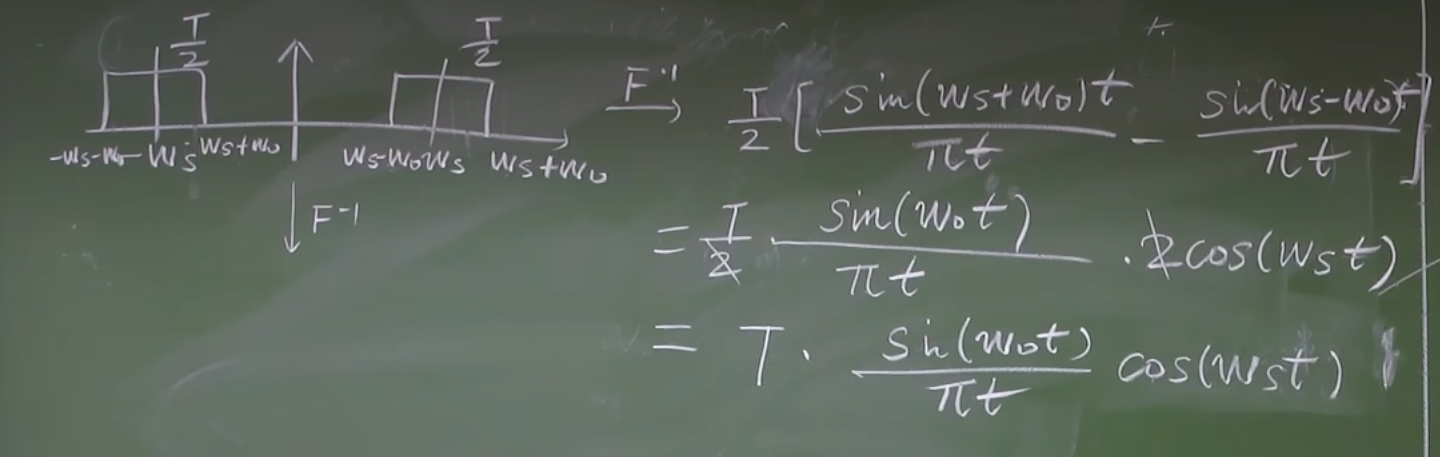 T/2 T/2
-ws-w0 -ws ws+w0 ws-w0 ws ws+w0
F⁻¹
F⁻¹ T/2 [ sin(ws+w0)t / πt - sin(ws-w0)t / πt ]
= T/2 · sin(w0t) / πt · 2cos(wst)
= T · sin(w0t) / πt cos(wst)